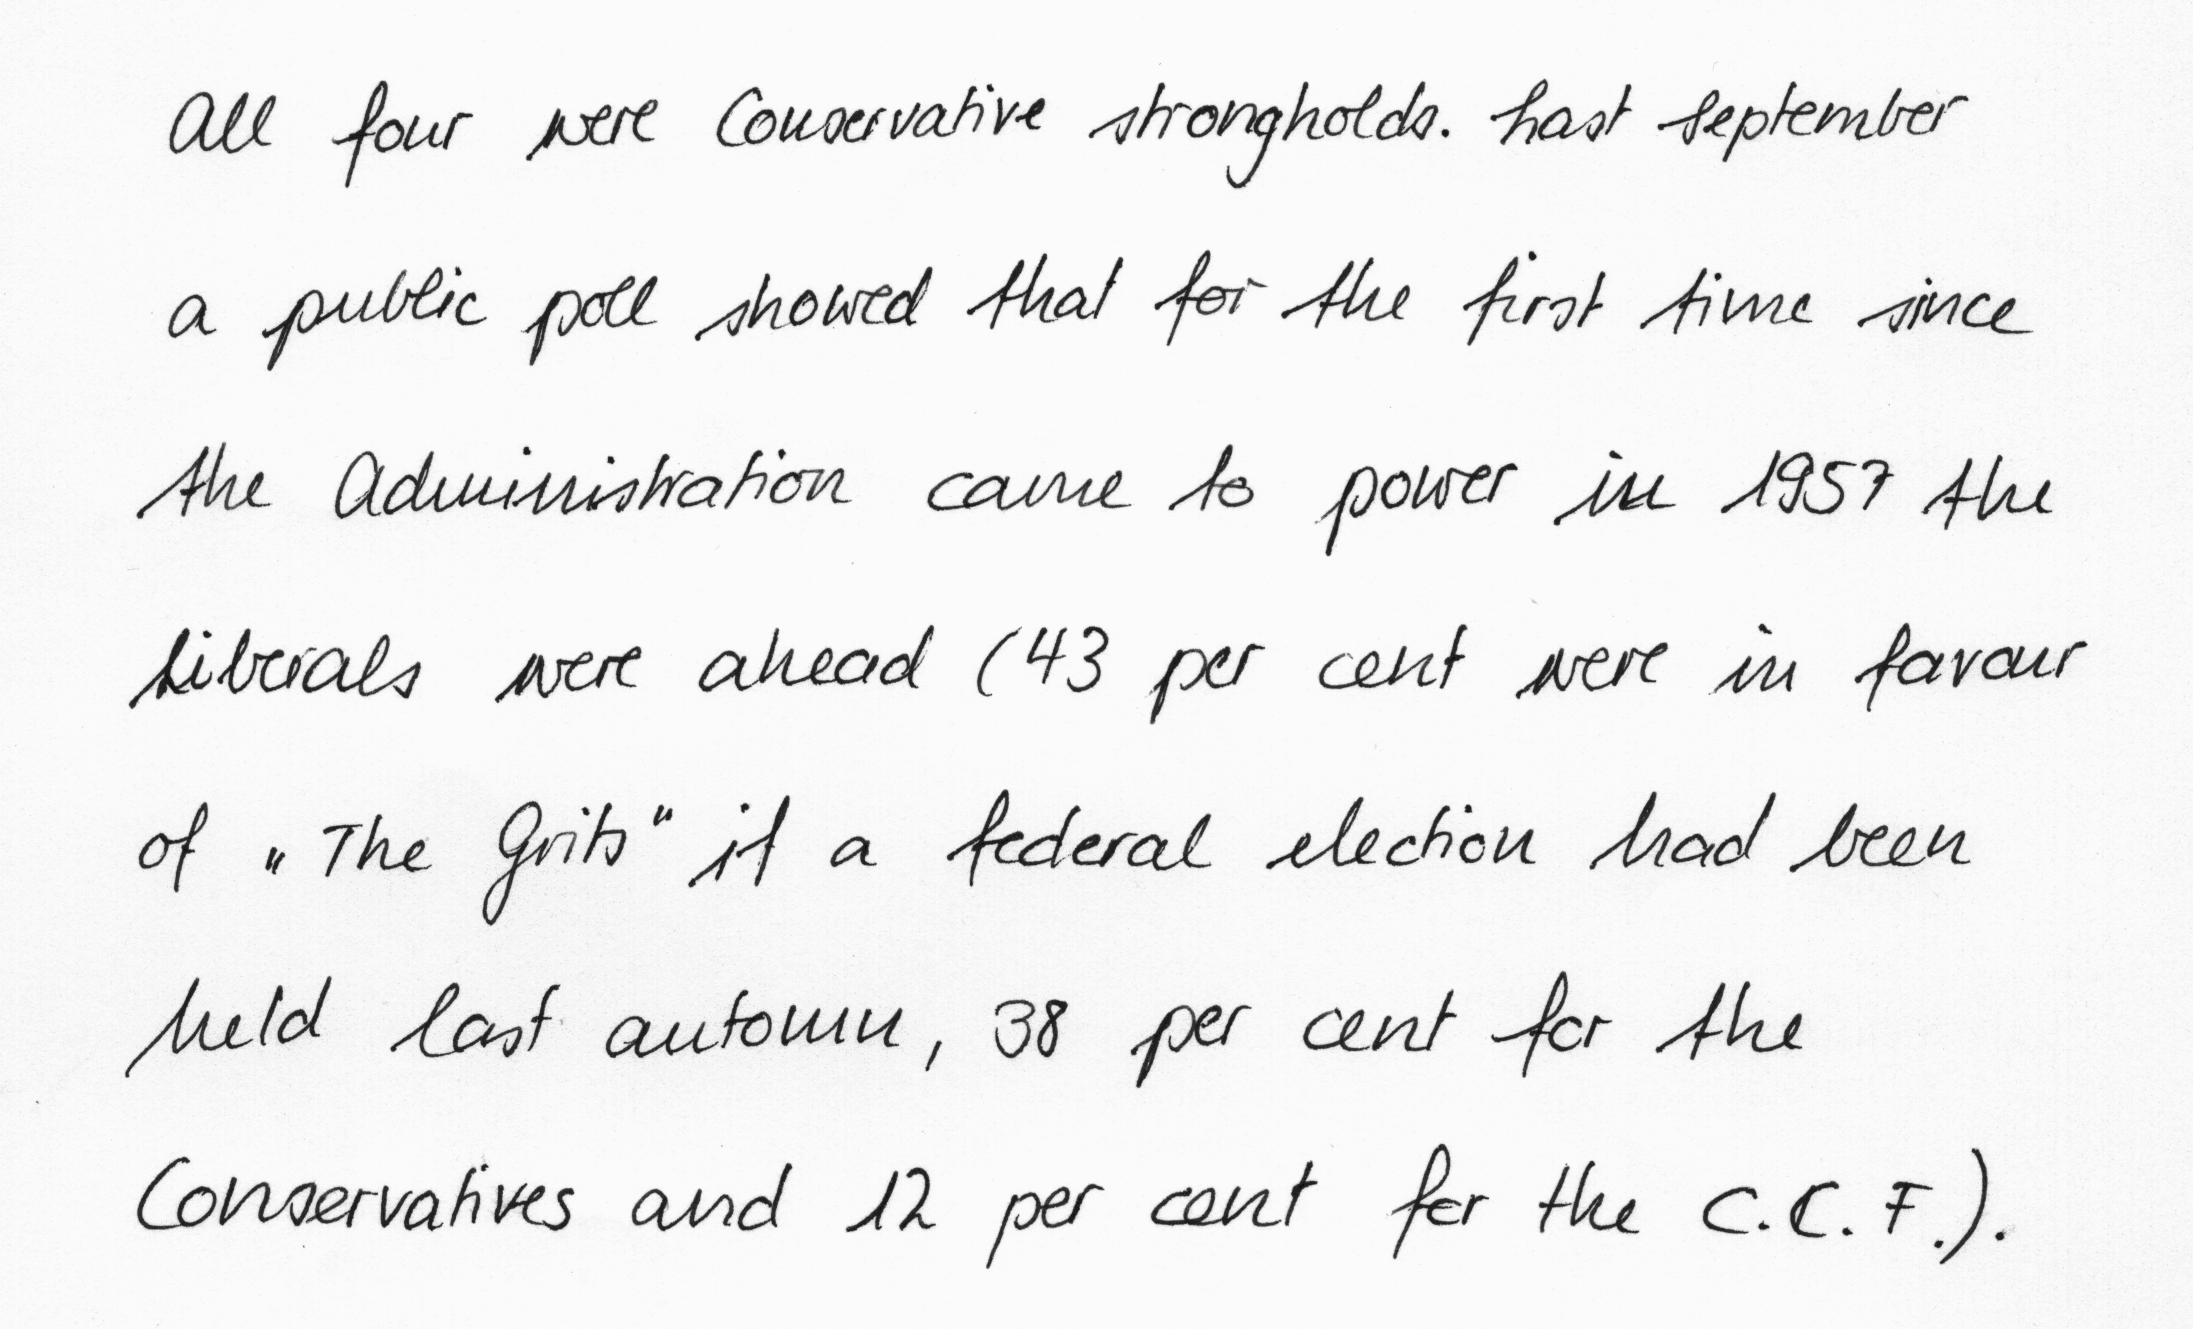 All four were Conservative strongholds. Last September
a public poll showed that for the first time since
the Administration came to power in 1957 the
Liberals were ahead (43 per cent were in favour
of „The Grits" if a federal election had been
held last automn, 38 per cent for the
Conservatives and 12 per cent for the C.C.F.).